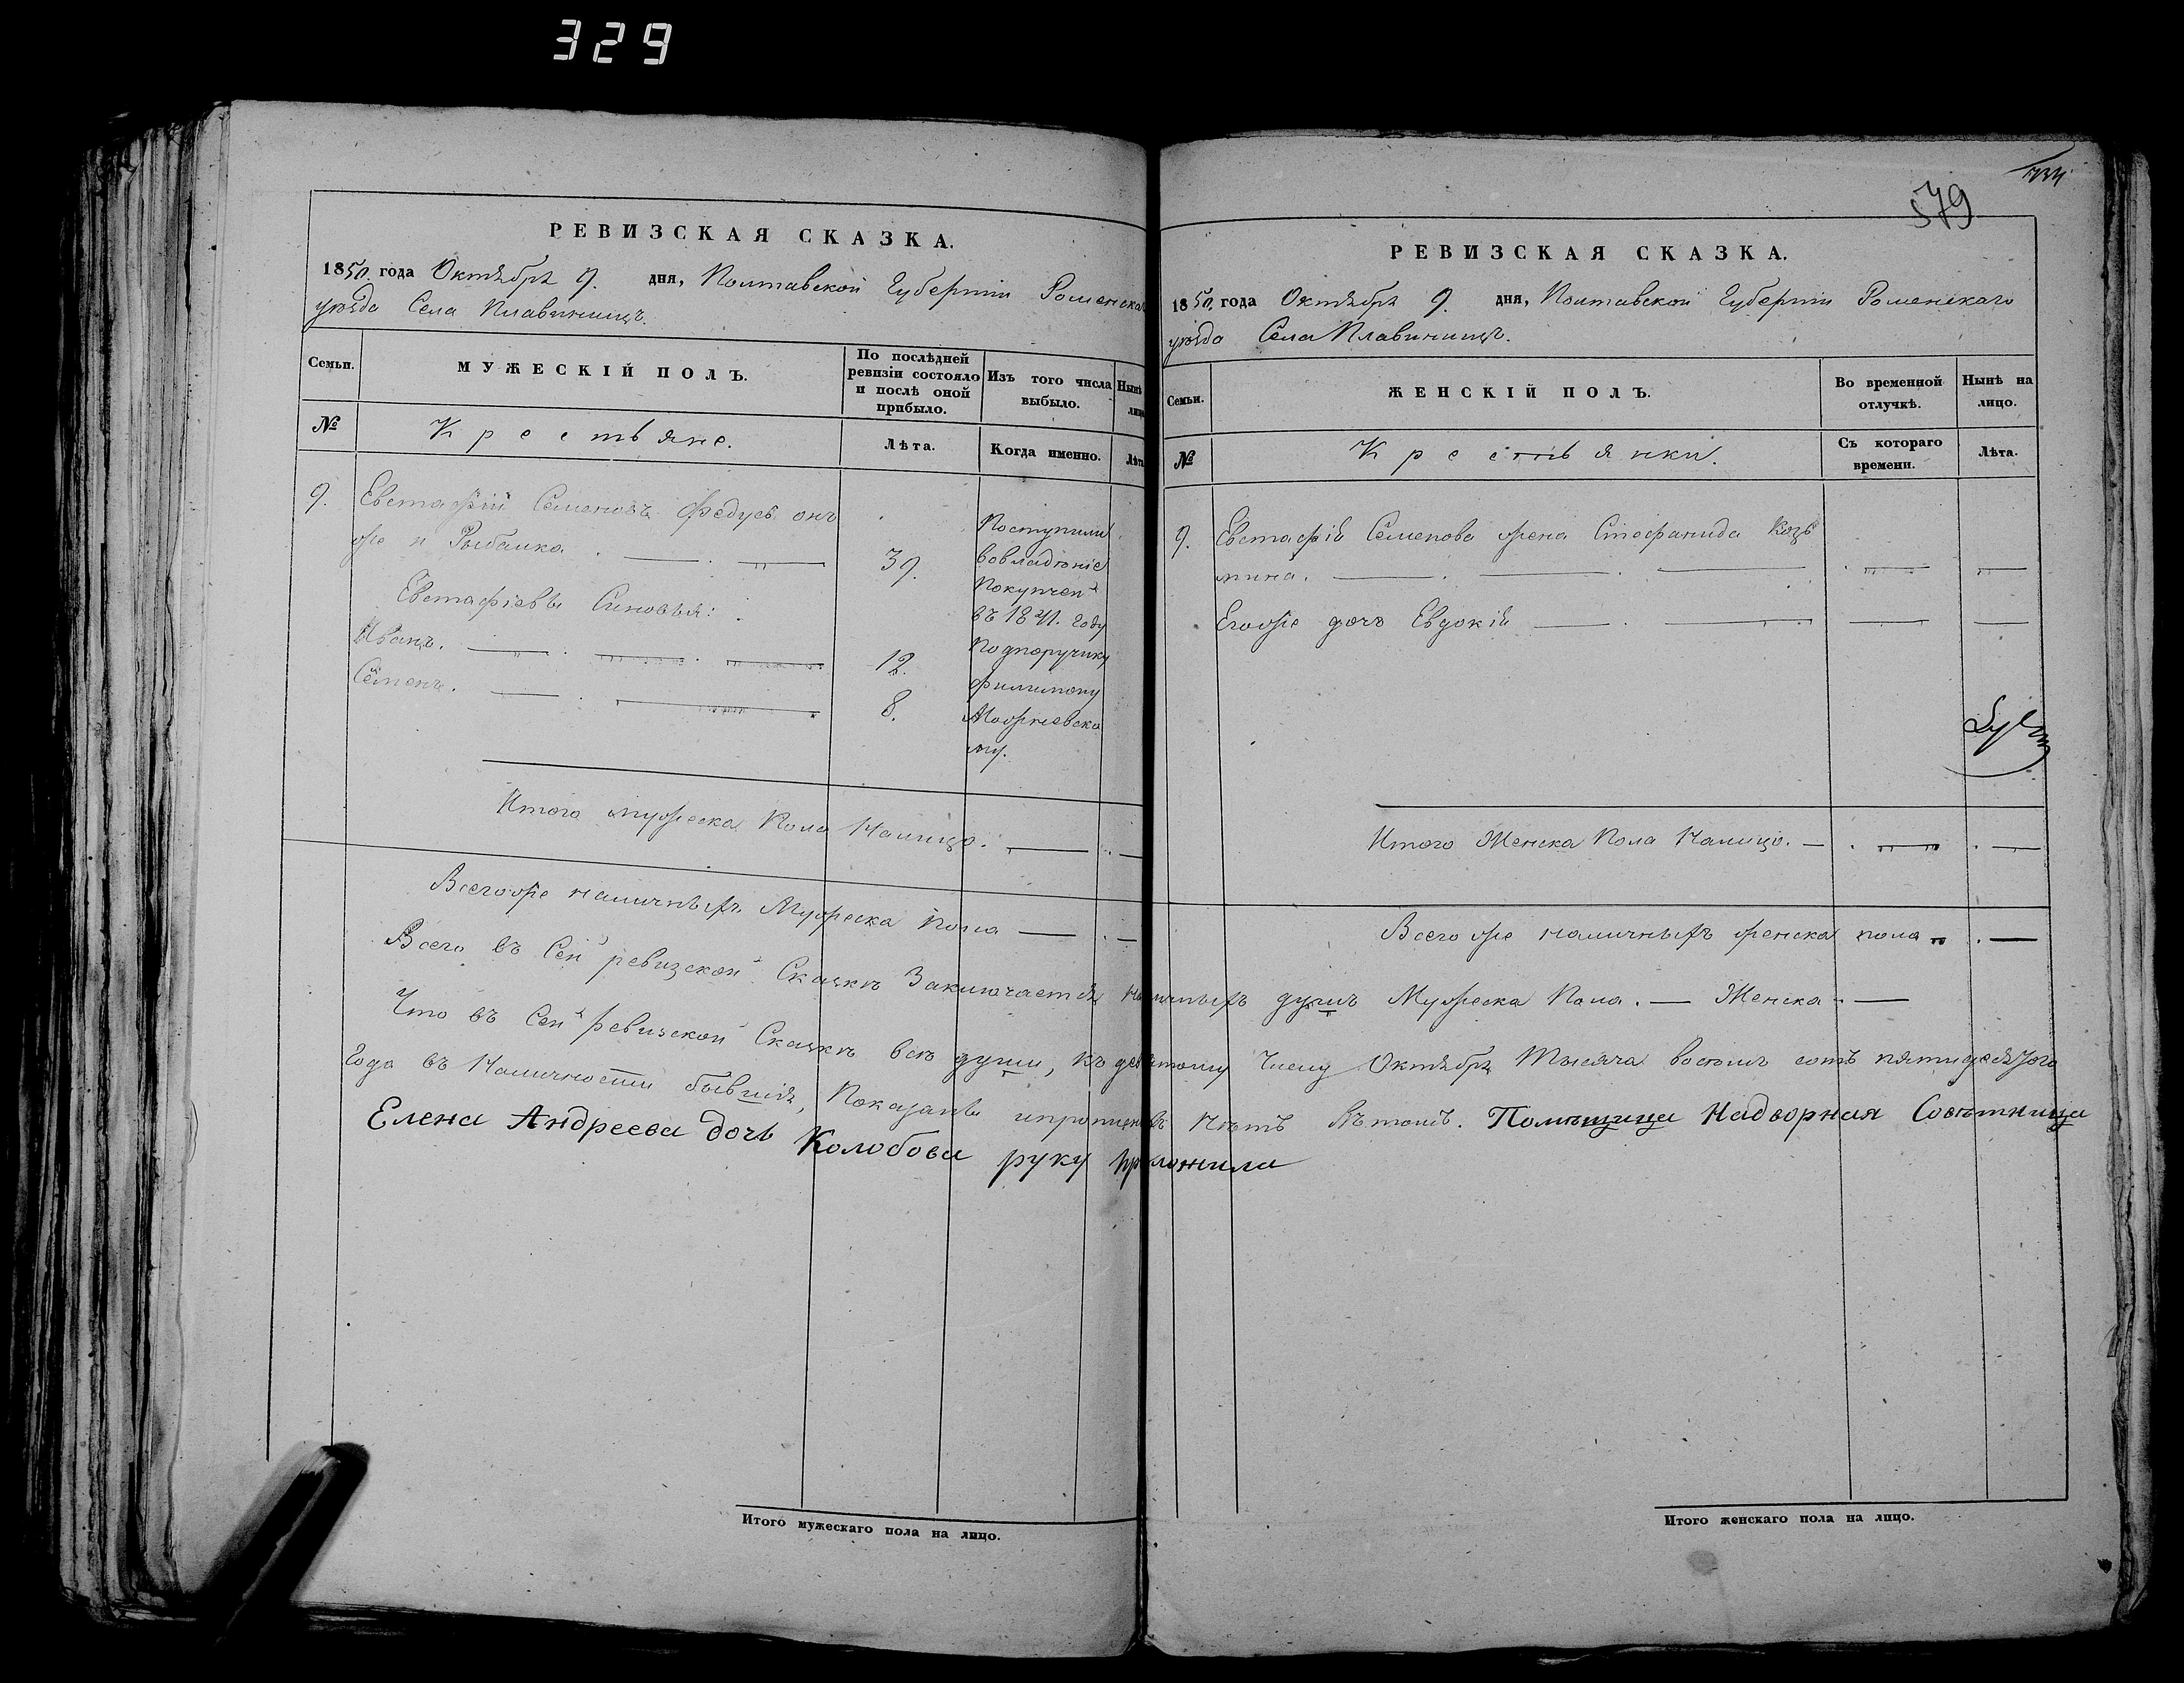 329
РЕВИЗСКАЯ СКАЗКА.
1850. года Октября 9. дня, Полтавской Губернии Роменска
уезда Села Плавинищъ.
Семьи.
МУЖЕСКІЙ ПОЛЪ.
По послѣдней ревизіи состояло и послѣ оной прибыло.
Изъ того числа выбыло.
Нынѣ
№
Крестьяне.
Лѣта.
Когда именно.
Лѣта
9. Евстафій Семеновъ Федусь онъ
же и Рыбалка. 39.
Евстафіевы Синовья:
Иванъ. 12.
Семенъ. 8.
Поступили
вовладѣніе
Покупчей
въ 1841. году
Подпоручику
Филимону
Можневско
му.
Итого мужеска Пола Налицо.
Всегоже наличныхъ Мужеска Пола
РЕВИЗСКАЯ СКАЗКА.
579
1850. года Октября 9. дня, Полтавской Губерніи Роменскаго
уезда Села Плавинищъ.
Семьи.
ЖЕНСКІЙ ПОЛЪ.
Во временной отлучкѣ.
Нынѣ на лицо.
№
Крестьянки.
Съ котораго времени.
Лѣта.
9. Евстафія Семенова жена Стефанида Козь
мина.
Егоже дочь Евдокія
Итого Женска Пола Налицо.
Всего же наличныхъ женска пола
Всего въ Сей ревизской Сказкѣ Заключается наличныхъ душъ Мужеска Пола. — Женска —
Что въ Сей ревизской Сказкѣ всѣ души, къ девятому Числу Октября Тысяча восемь сотъ пятидесятого
Года въ Наличности бывшія, Показаны ипропущенныхъ Нѣтъ Вътомъ. Помѣщица Надворная Совѣтница
Елена Андреева дочь Колобова руку приложила
Итого мужескаго пола на лицо.
Итого женскаго пола на лицо.